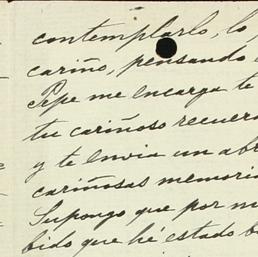 contemplarlo, lo
cariño, pensando
Pepe me encarga te
tu cariñoso recuer
y te envia un abr
cariñosas memoria
Supongo que por m
bido que hé estado b